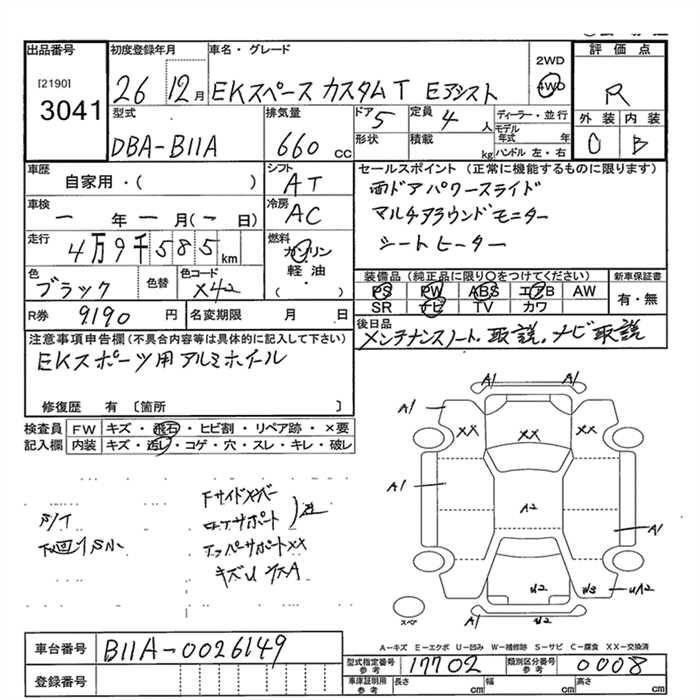 出品番号 初度登録年月 車名・グレード 評価点
[2190] 2WD
3041 26 12月 EKスペース カスタムT Eアシスト 4WD R
型式 排気量 ドア 5 定員 4人 ディーラー・並行 外装 内装
DBA-B11A 660cc 形状 積載 kg モデル年式 年 ハンドル 左・右 C B
車歴 シフト セールスポイント (正常に機能するものに限ります)
自家用・( ) AT 両ドアパワースライド
車検 冷房 マルチアラウンドモニター
一 年 一 月(一 日) AC シートヒーター
走行 燃料
4万9千585km ガソリン 装備品 (純正品に限り○をつけてください) 新車保証書
色 色替 色コード 軽油・ PS PW ABS エアB AW 有・無
ブラック X42 ( ) SR ナビ TV カワ
R券 9190円 名変期限 月 日 後日品
メンテナンスノート.取説.ナビ取説
注意事項申告欄 (不具合内容等は具体的に記入して下さい)
EKスポーツ用アルミホイール
修復歴 有 〔箇所 〕
検査員 FW キズ・飛石・ヒビ割・リペア跡・×要
記入欄 内装 キズ・汚レ・コゲ・穴・スレ・キレ・破レ
A1
A1 A1
XX XX XX
A1 A2 A1
Fサイドメンバー
ロアサポート
下廻りS小
アッパーサポートXX
キズU
U2 UA2
A1
スペア
A-キズ E-エクボ U-凹み W-補修跡 S-サビ C-腐食 XX-交換済
車台番号 B11A-0026149
型式指定番号 参考 17702 類別区分番号 参考 0008
登録番号 車庫証明用 参考 長さ cm 幅 cm 高さ cm